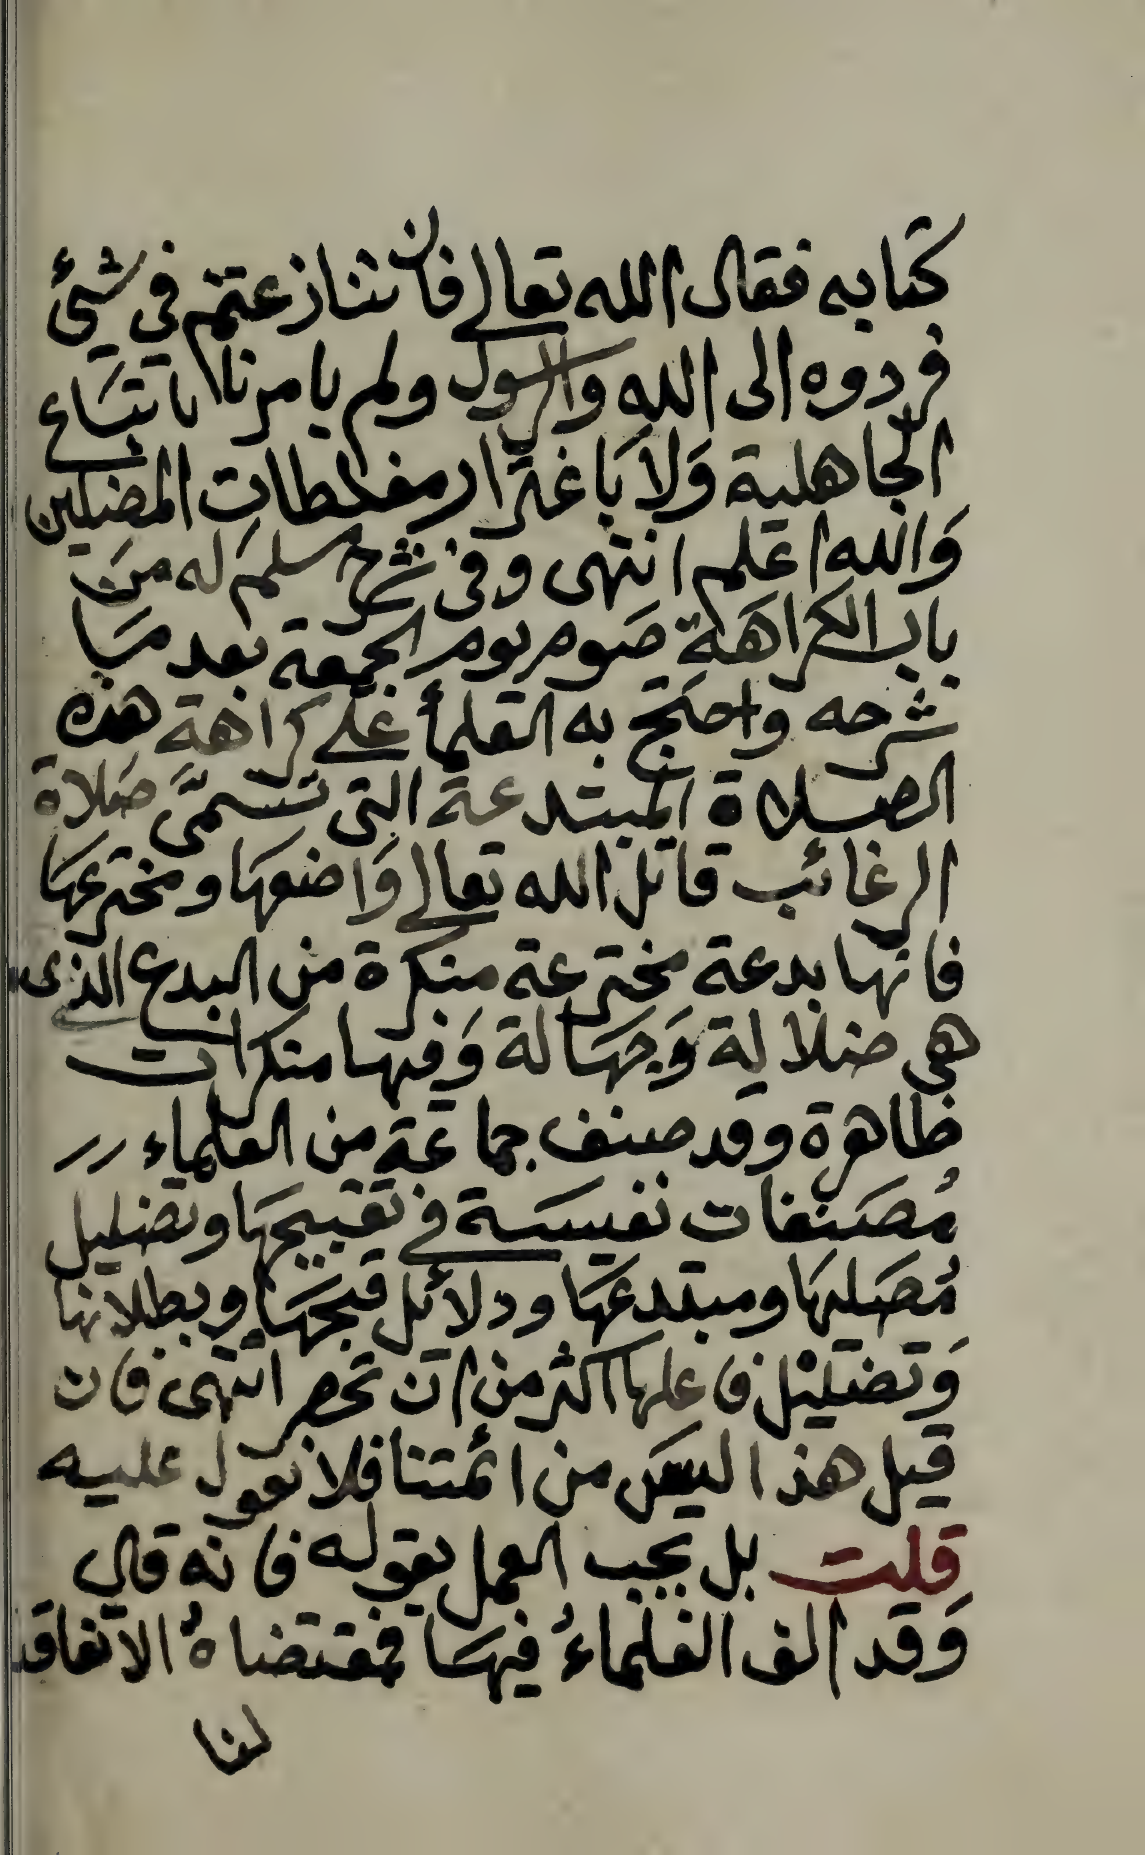 كتابه فقال الله تعالى فان تنازعتم في شيئ
فردوه الى الله والرسول ولم يامرنا باتباع
الجاهلية ولا باغترار مغلطات المضلين
والله اعلم انتهى وفي شرح مسلم له من
باب الكراهة صوم يوم الجمعة بعد ما
شرحه واحتج به العلمأ على كراهة هذه
الصلاة المبتدعة التي تسمى صلاة
الرغائب قاتل الله تعالى واضعها ومخترعها
فانها بدعة مخترعة منكرة من البدع الذي
هي ضلالة وجهالة وفيها منكرات
ظاهرة وقد صنف جماعة من العلماء
مُصنفات نفيسة في تقبيحها وتضليل
مُصَليها ومبتدعها ودلائل قبحها وبطلانها
وتضليل فاعلها اكثر من ان تحصر انتهى فان
قيل هذا ليس من ائمتنا فلا نعول عليه
قلت بل يجب العمل بقوله فانه قال
وقد الف العلماءُ فيها فمقتضاهُ الاتفاقد
لنا